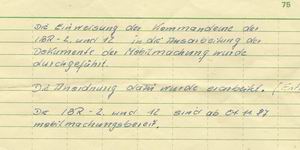 75
Die Einweisung der Kommandeure der
IBR-2 und 12 in die Ausarbeitung der
Dokumente der Mobilmachung wurde
durchgeführt.
Die Anordnung dafür wurde erarbeitet.
Die IBR-2 und 12 sind ab 01.11.87
mobilmachungsbereit.